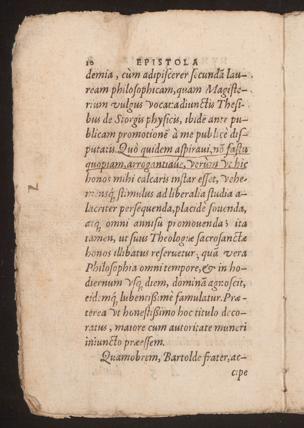 10 EPISTOLA
demia, cùm adipiscerer secundā lau-
ream philosophicam, quam Magiste-
rium vulgus vocat: adiunctis Thesi-
bus de Storgis physicis, ibidē ante pu-
blicam promotionē à me publicè dis-
putatis. Quò quidem aspiraui, nō fastu
quopiam, arrogantiaúe, verùm vt hic
honos mihi calcaris instar esset, vehe-
mensq́; stimulus ad liberalia studia a-
lacriter persequenda, placidè fouenda,
atq; omni annisu promouenda: ita
tamen, vt suus Theologiæ sacrosanctæ
honos illibatus reseruetur, quā vera
Philosophia omni tempore, & in ho-
diernum vsq; diem, dominā agnoscit,
eidemq́; lubentissimè famulatur. Præ-
terea vt honestissimo hoc titulo deco-
ratus, maiore cum autoritate muneri
iniuncto præessem.
Quamobrem, Bartolde frater, ac-
cipe